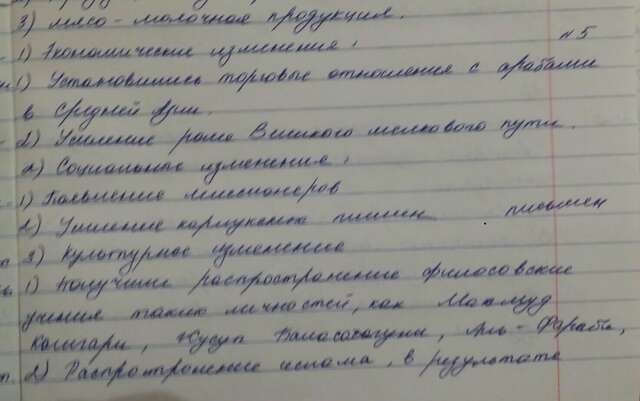 3) мясо - молочная продукция.
1) Экономические изменения: №5
1) Установились торговые отношения с арабами
в Средней Азии.
2) Усиление роли Великого шелкового пути.
2) Социальные изменения:
1) Появление миссионеров
2) Усиление племен письмен
3) Культурное изменение
1) Получили распространение философские
учения таких личностей, как Махмуд
Кашгари, Жусуп Баласагуни, Аль-Фараби,
2) Распространение ислама, в результате